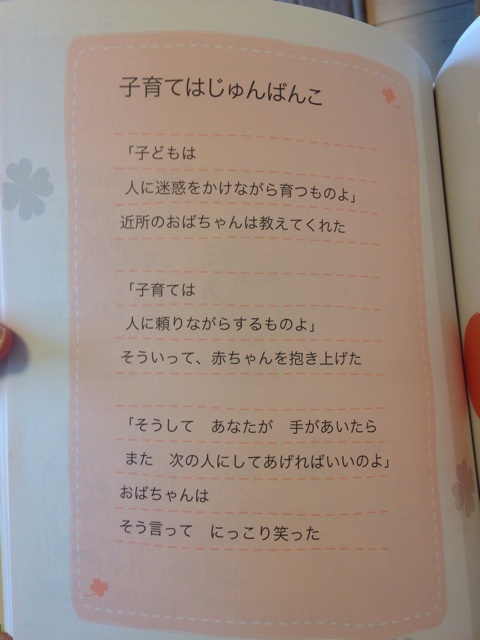 子育てはじゅんばんこ
「子どもは
人に迷惑をかけながら育つものよ」
近所のおばちゃんは教えてくれた
「子育ては
人に頼りながらするものよ」
そういって、赤ちゃんを抱き上げた
「そうして　あなたが　手があいたら
また　次の人にしてあげればいいのよ」
おばちゃんは
そう言って　にっこり笑った